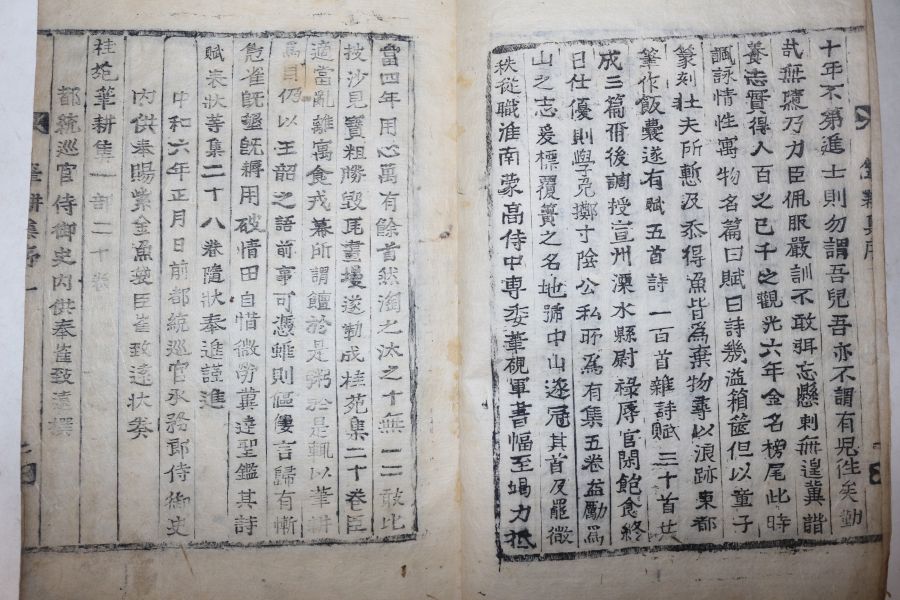 筆耕集序
十年不第進士則勿謂吾兒吾亦不謂有兒徃矣勤
哉無隳乃力臣佩服嚴訓不敢弭忘懸刺無遑冀諧
養志實得人百之已千之觀光六年金名榜尾此時
諷詠情性寓物名篇曰賦曰詩幾溢箱篋但以童子
篆刻壯夫所慙及忝得魚皆爲棄物尋以浪跡東都
筆作飯囊遂有賦五首詩一百首雜詩賦三十首共
成三篇爾後調授宣州溧水縣尉祿厚官閑飽食終
日仕優則學免擲寸陰公私所爲有集五卷益勵爲
山之志爰標覆簣之名地號中山遂冠其首及罷微
秩從職淮南蒙高侍中專委筆硯軍書幅至竭力抵
當四年用心萬有餘首然淘之汰之十無一二敢比
披沙見寶粗勝毀瓦畫墁遂勒成桂苑集二十卷臣
適當亂離寓食戎幕所謂饘於是粥於是輒以筆耕
爲目仍以王韶之語前事可憑雖則傴僂言歸有慚
鳧雀旣墾旣耨用破情田自惜微勞冀達聖鑑其詩
賦表狀等集二十八卷隨狀奉進謹進
中和六年正月日前都統巡官承務郎侍御史
內供奉賜紫金魚袋臣崔致遠狀奏
桂苑筆耕集一部二十卷
都統巡官侍御史內供奉崔致遠撰
筆耕集序